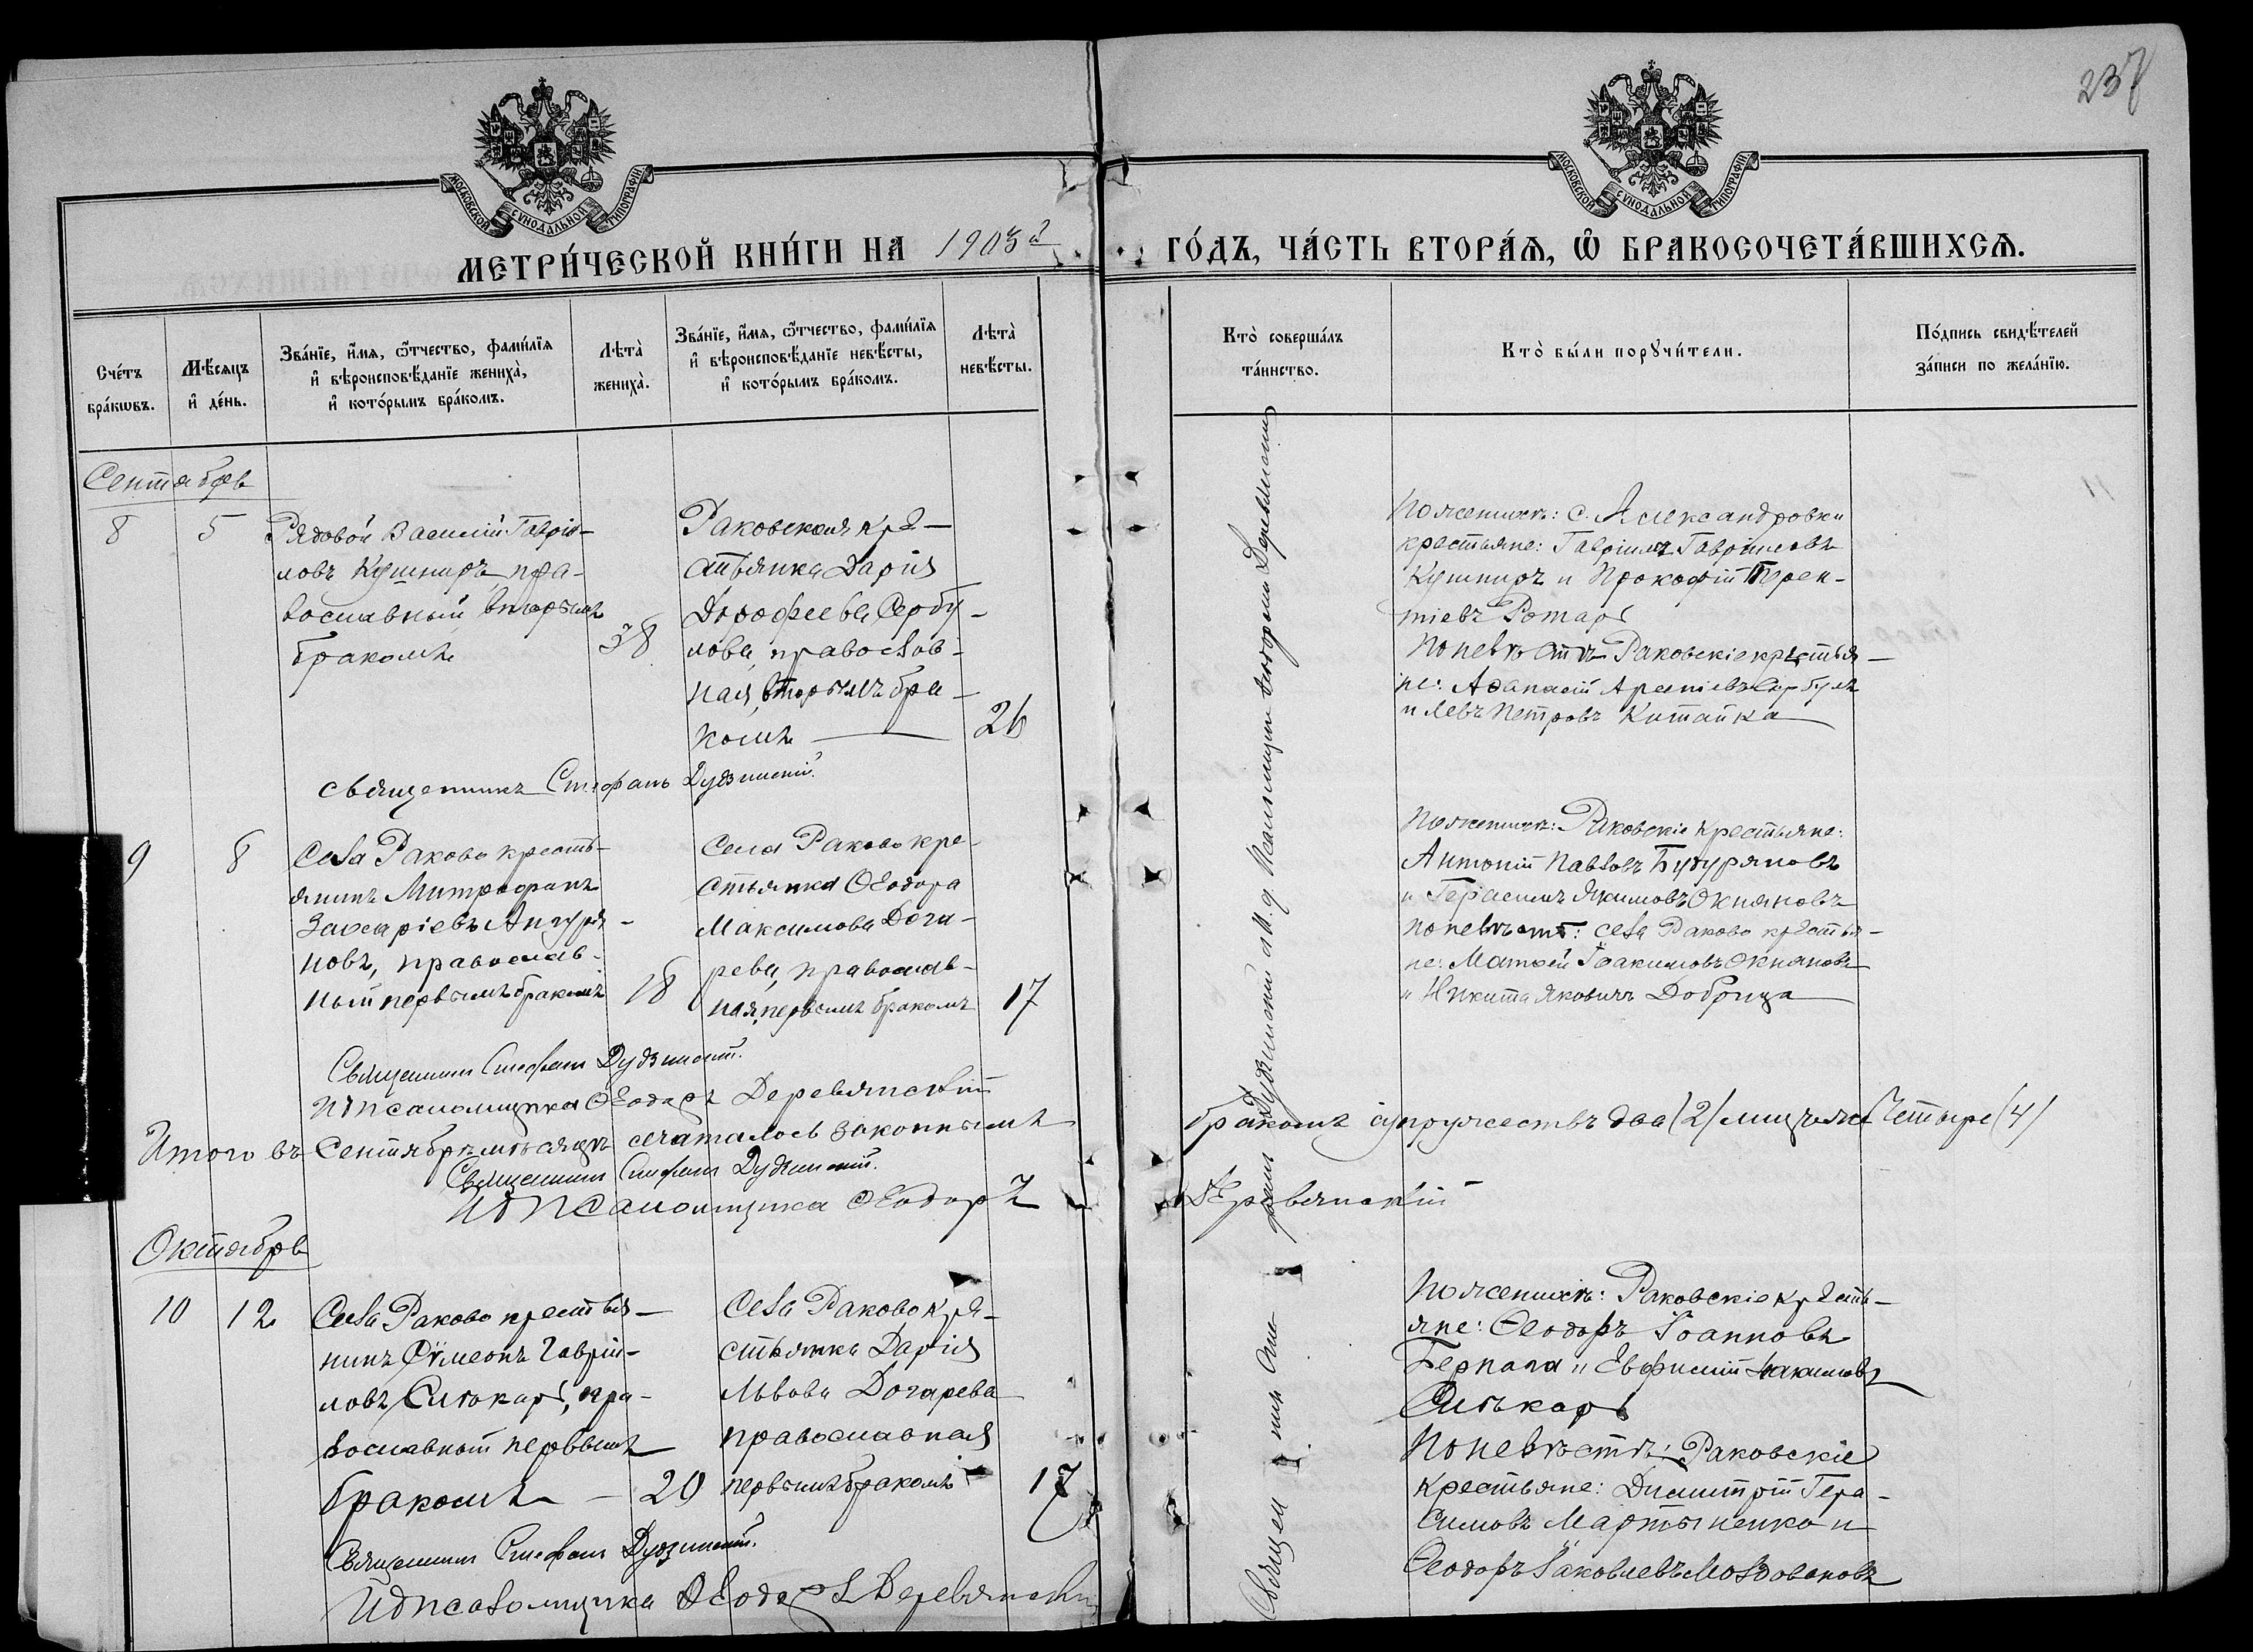 237
МОСКОВСКОЙ СѴНОДАЛЬНОЙ ТИПОГРАФІИ
МОСКОВСКОЙ СѴНОДАЛЬНОЙ ТИПОГРАФІИ
МЕТРИ́ЧЕСКОЙ КНИ́ГИ НА 1903 г
ГО́ДЪ, ЧА́СТЬ ВТОРА́Я, Ѽ БРАКОСОЧЕТА́ВШИХСЯ.
Сче́тъ бра́кωвъ.
Мѣ́сяцъ и҆ де́нь.
Зва́нїе, и҆́мя, ѻ҆́тчество, фами́лїя
и҆ вѣроисповѣ́данїе жениха̀,
и҆ кото́рымъ бра́комъ.
Лѣта̀ жениха̀.
Зва́нїе, и҆́мя, ѻ҆́тчество, фами́лїя
и҆ вѣроисповѣ́данїе невѣ́сты,
и҆ кото́рымъ бра́комъ.
Лѣта̀ невѣ́сты.
Кто̀ соверша́лъ
та́инство.
Кто̀ бы́ли порꙋчи́тели.
По́дпись свидѣ́телей
за́писи по жела́нїю.
Сентябрь
8 5
Рядовой Василій Гаврiи-
ловъ Кушниръ, пра-
вославный вторымъ
бракомъ
38
Раковская кре-
стьянка Дарія
Дорофеева Сербу-
лова, православ-
ная, вторымъ бра-
комъ
26
По женихѣ: с. Александровки
крестьяне: Гавріилъ Гавріиловъ
Кушниръ и Прокофій Терен-
тіевъ Ротарь
По невѣстѣ Раковскіе крестья-
не: Афанасій Арсеніевъ Сербулъ
и Левъ Петровъ Китайка
Священникъ Стефанъ Дудзинскій.
9 8
Села Раково кресть-
янинъ Митрофанъ
Захаріевъ Ангуря-
новъ, православ-
ный первымъ бракомъ
18
Села Раково кре-
стьянка Ѳеодора
Максимова Дога-
рева, православ-
ная, первымъ бракомъ
17
По женихѣ: Раковскіе крестьяне:
Антоній Павловъ Бутуряновъ
и Герасимъ Якимовъ Окняновъ
По невѣстѣ: села Раково крестья-
не: Матѳей Іоакимовъ Окняновъ
и Никита Яковичъ Добрица
Священникъ Стефанъ Дудзинскій.
И д псаломщика Ѳеодоръ Деревянскій
Итого въ Сентябрѣ мѣсяцѣ сочаталось законнымъ
бракомъ супружествъ два (2) лицъ же Четыре (4)
Священникъ Стефанъ Дудзинскій.
И д псаломщика Ѳеодоръ
Деревянскій
Октябрь
10 12
Села Раково крестья-
нинъ Сѵмеонъ Гаврiи-
ловъ Ситькарь, пра-
вославный первымъ
бракомъ
20
Села Раково кре-
стьянка Дарія
Львова Догарева
православная
первымъ бракомъ
17
По женихѣ: Раковскіе кресть-
яне: Ѳеодоръ Іоанновъ
Бернага и Евфимій Іакимовъ
Ситькарь
По невѣстѣ: Раковскіе
крестьяне: Димитрій Гера-
симовъ Мартыненко и
Ѳеодоръ Іаковлевъ Молдовановъ
Священникъ Стефанъ Дудзинскій.
И д псаломщика Ѳеодоръ Деревянскій
Священникъ Стефанъ Дудзинскій и И. д. Псаломщика Ѳеодоръ Деревянскій